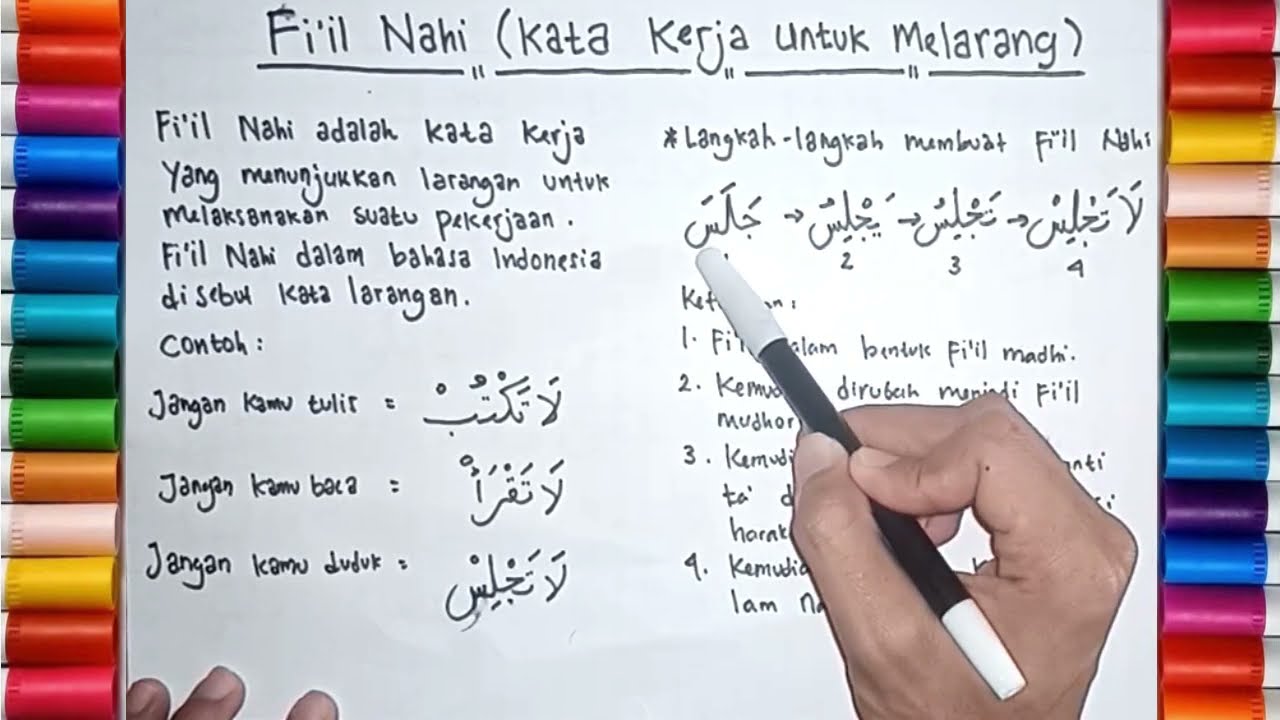 Fi'il Nahi (Kata Kerja untuk Melarang)
Fi'il Nahi adalah kata kerja
Yang menunjukkan larangan untuk
melaksanakan suatu pekerjaan.
Fi'il Nahi dalam bahasa Indonesia
disebut kata larangan.
Contoh:
Jangan kamu tulis = لَا تَكْتُبْ
Jangan kamu baca = لَا تَقْرَأْ
Jangan kamu duduk = لَا تَجْلِيسْ
*Langkah-langkah membuat Fi'il Nahi
جَلَسَ → يَجْلِيسُ → تَجْلِيسُ → لَا تَجْلِيسْ
2 3 4
1. dalam bentuk Fi'il madhi.
2. dirubah menjadi Fi'il
3.
ta'
4.
lam